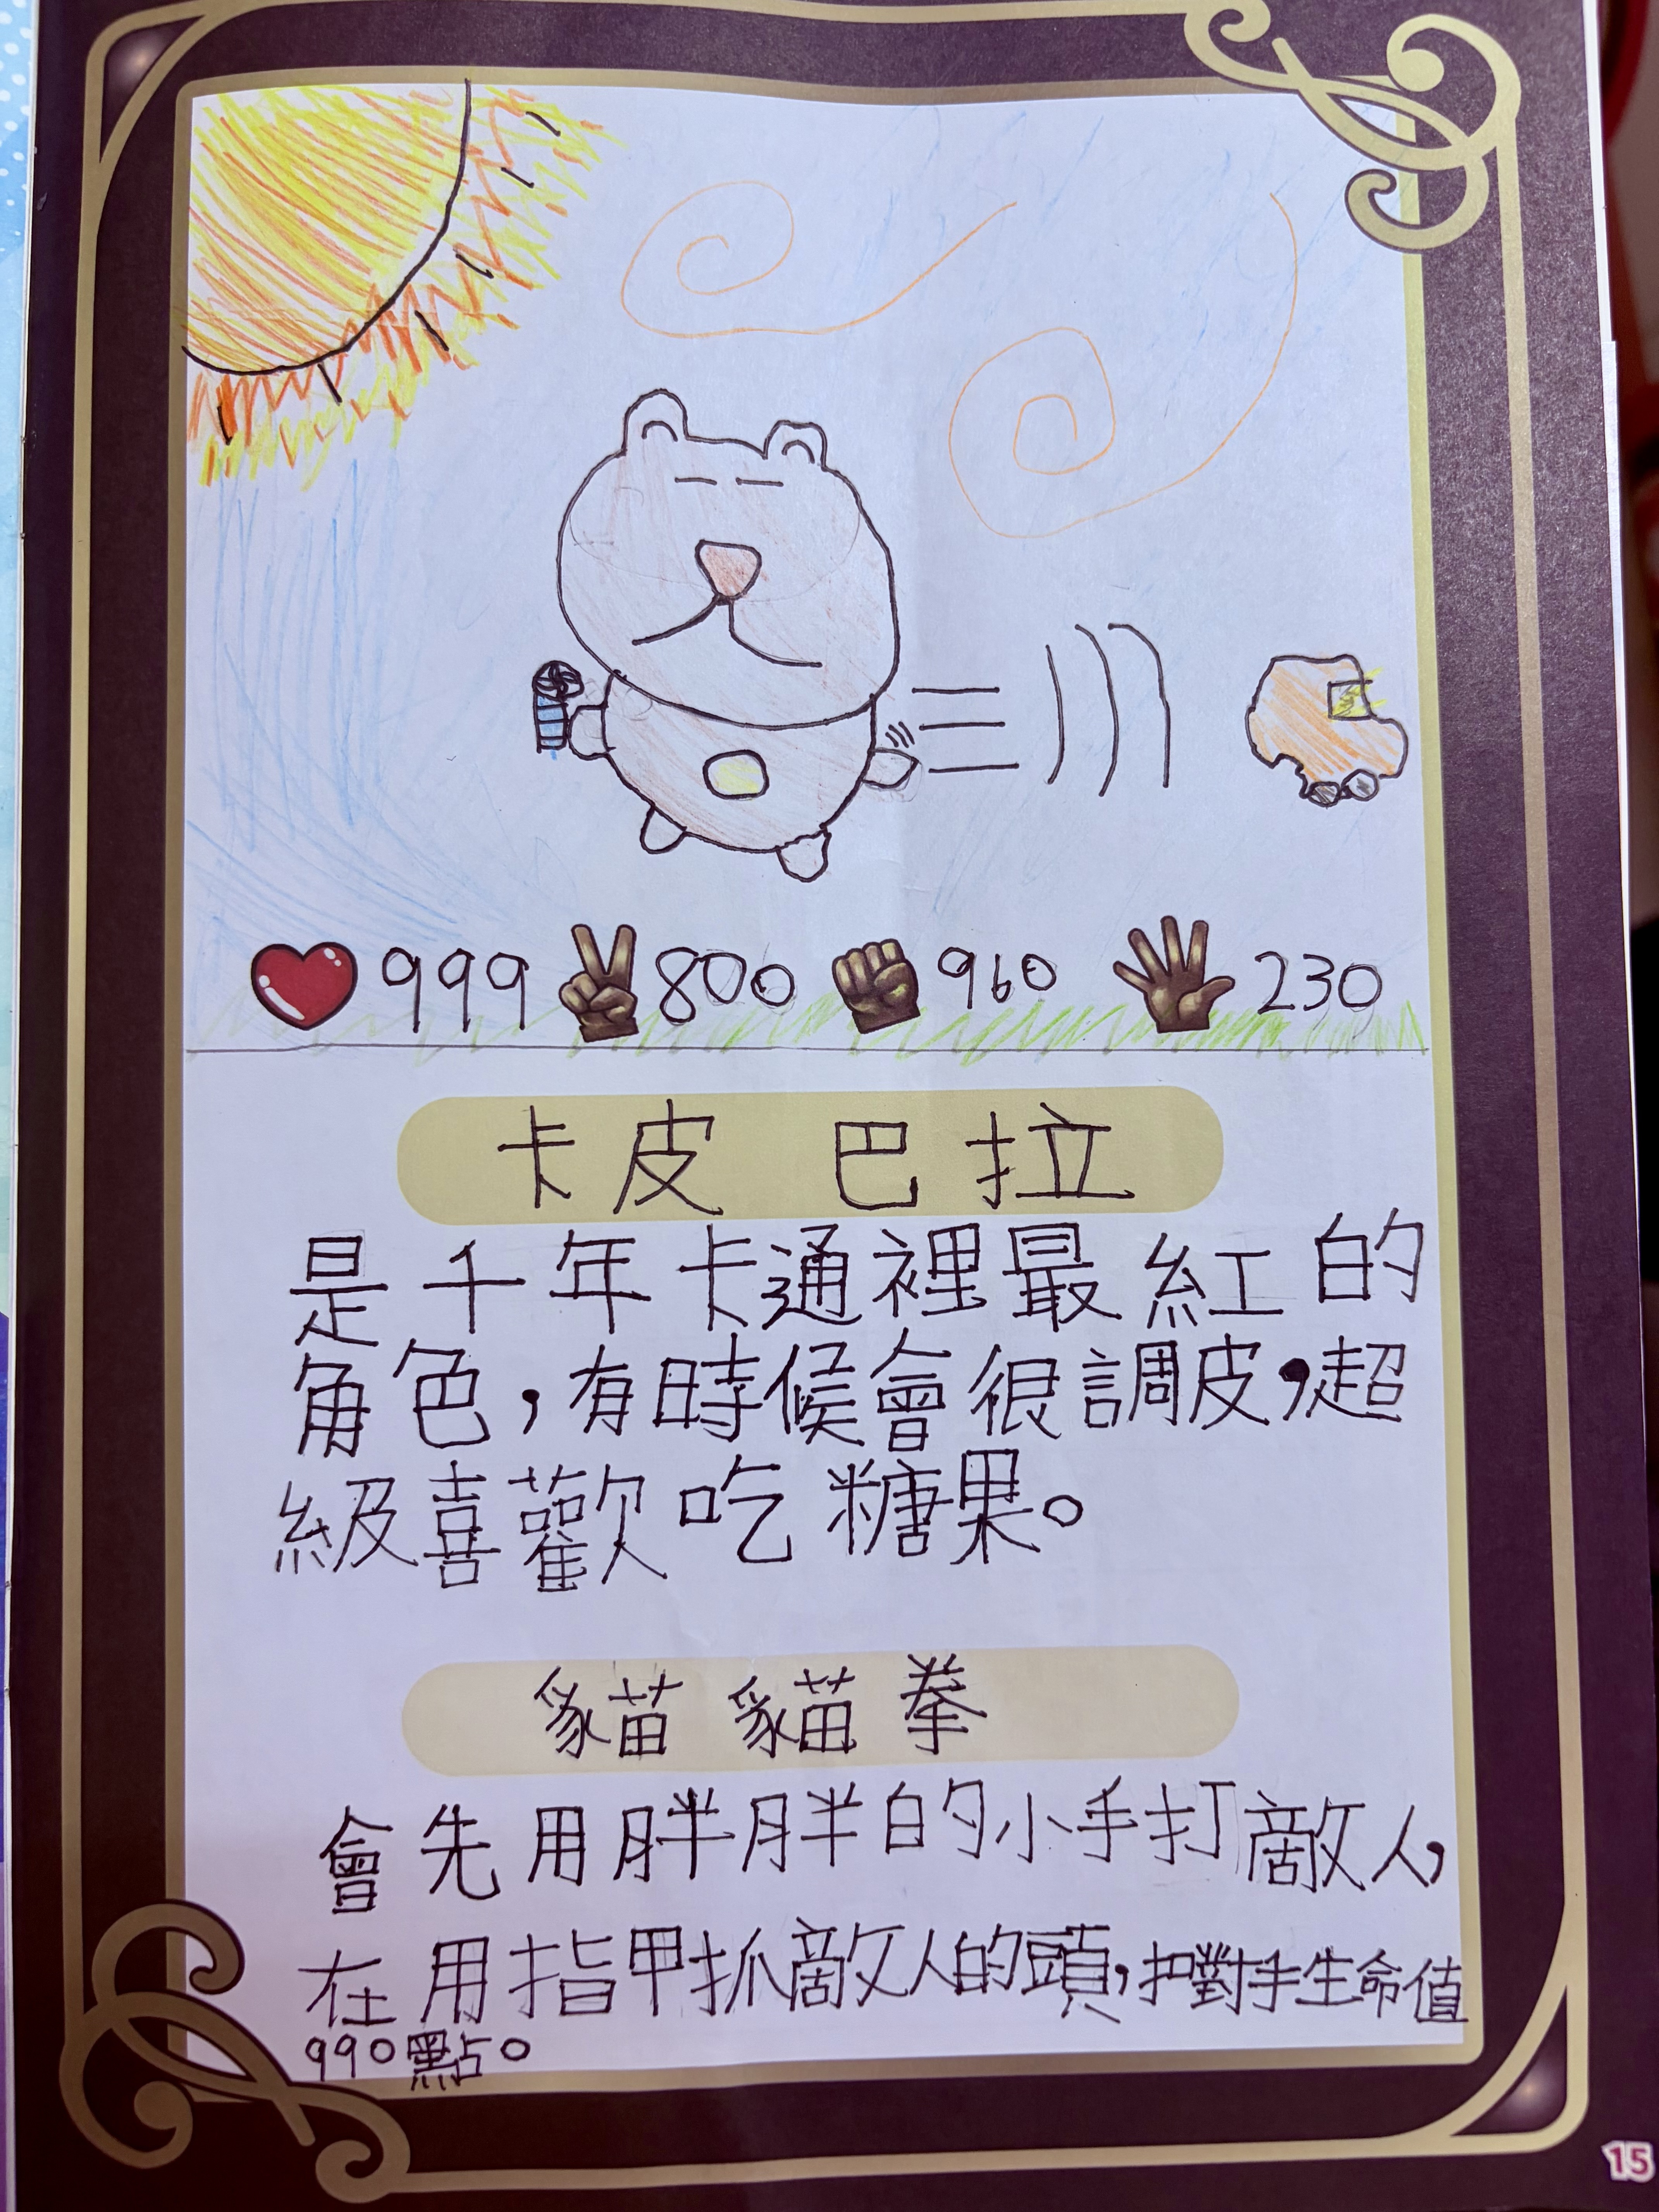 999 800 960 230
卡皮巴拉
是千年卡通裡最紅的
角色,有時候會很調皮,超
級喜歡吃糖果。
貓貓拳
會先用胖胖的小手打敵人,
在用指甲抓敵人的頭,扣對手生命值
990點。
15